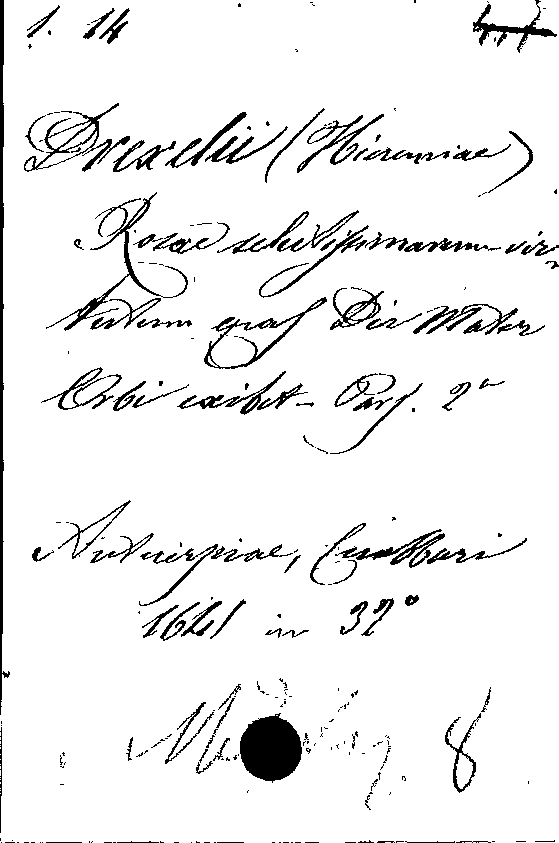 1. 14
Drexelii (Hieremiae)
Rosae selectissimarum vir-
tutum quas Dei Mater
Orbi exibet - Pars. 2ª
Antuerpiae, Cnobbari
1641 in 32°
8